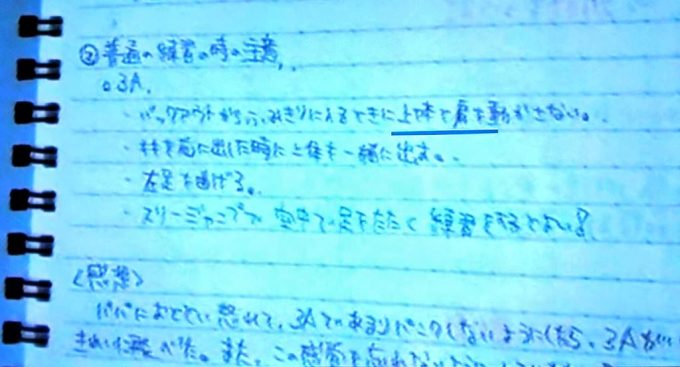 ②普通の練習の時の注意。
○3A.
・バックアウトからふみきりに入るときに上体と肩を動かさない。
・体を前に出した時に上体も一緒に出す。
・左足を曲げる。
・スリージャンプで空中で足をたたく練習をするとよい!
〈感想〉
パパにおととい怒れて、3Aであまりパニクらないようにしたら、3Aが
きれいに飛べた。また、この感覚を忘れないように